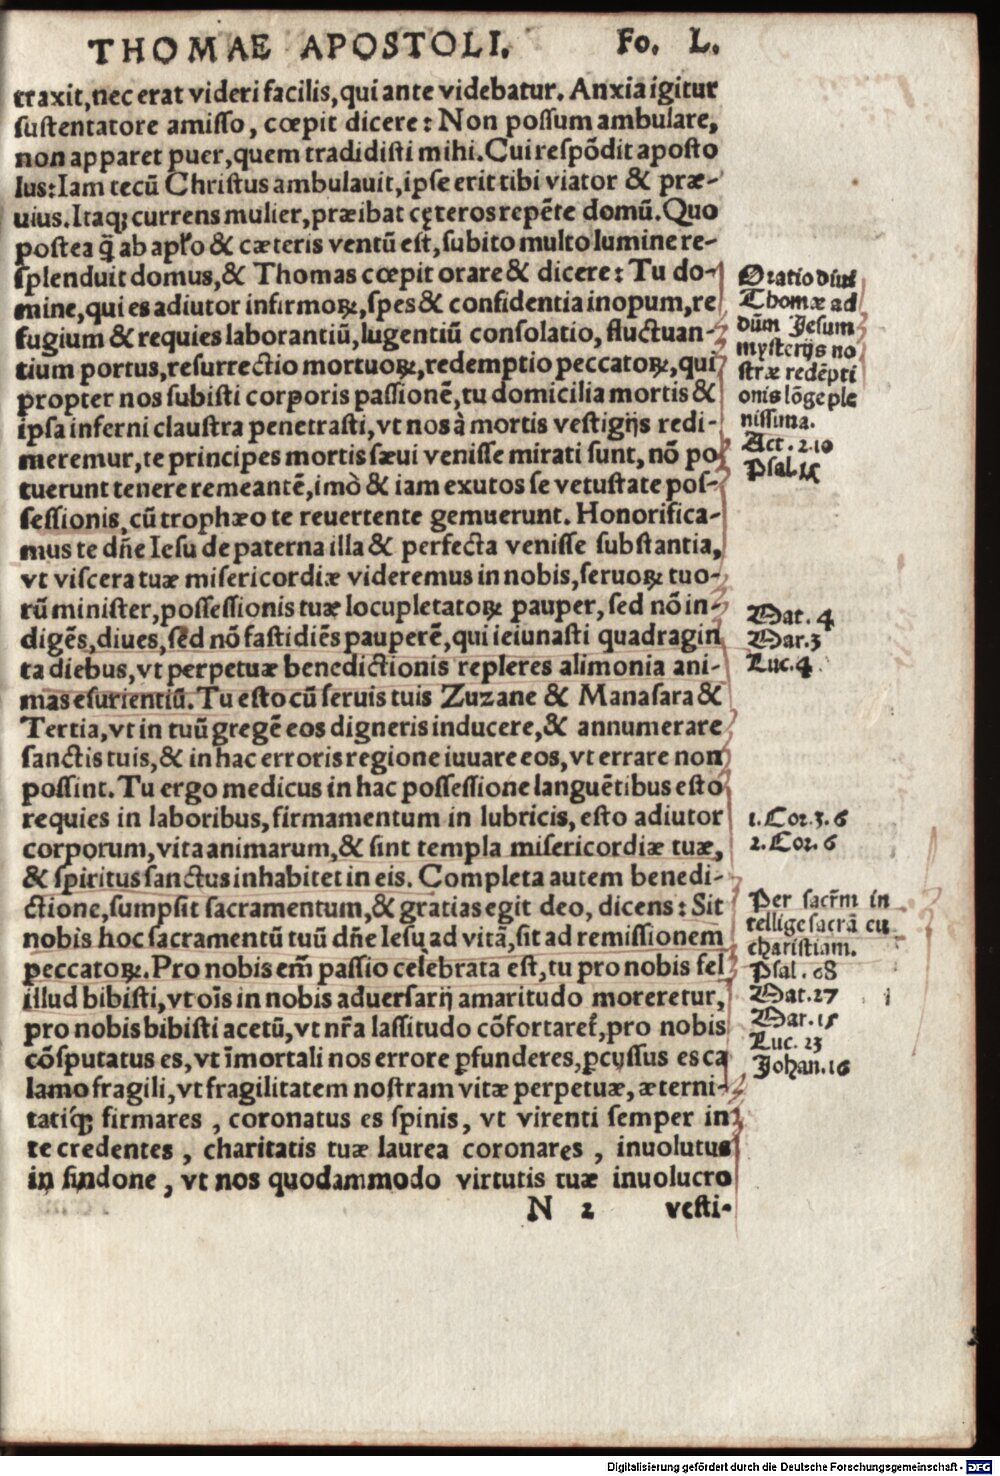 THOMAE APOSTOLI. Fo. L.
traxit, nec erat videri facilis, qui ante videbatur. Anxia igitur
sustentatore amisso, cœpit dicere: Non possum ambulare,
non apparet puer, quem tradidisti mihi. Cui respōdit aposto
lus: Iam tecū Christus ambulauit, ipse erit tibi viator & præ-
uius. Itaq; currens mulier, præibat cęteros repēte domū. Quo
postea q̄ ab apło & cæteris ventū est, subito multo lumine re-
splenduit domus, & Thomas cœpit orare & dicere: Tu do-
mine, qui es adiutor infirmoꝝ, spes & confidentia inopum, re
fugium & requies laborantiū, lugentiū consolatio, fluctuan-
tium portus, resurrectio mortuoꝝ, redemptio peccatoꝝ, qui
propter nos subisti corporis passionē, tu domicilia mortis &
ipsa inferni claustra penetrasti, vt nos à mortis vestigijs redi-
meremur, te principes mortis sæui venisse mirati sunt, nō po
tuerunt tenere remeantē, imò & iam exutos se vetustate pos-
sessionis, cū trophæo te reuertente gemuerunt. Honorifica-
mus te dñe Iesu de paterna illa & perfecta venisse substantia,
vt viscera tuæ misericordiæ videremus in nobis, seruoꝝ tuo-
rū minister, possessionis tuæ locupletatoꝝ pauper, sed nō in-
digēs, diues, sed nō fastidiēs pauperē, qui ieiunasti quadragin
ta diebus, vt perpetuæ benedictionis repleres alimonia ani-
mas esurientiū. Tu esto cū seruis tuis Zuzane & Manasara &
Tertia, vt in tuū gregē eos digneris inducere, & annumerare
sanctis tuis, & in hac erroris regione iuuare eos, vt errare non
possint. Tu ergo medicus in hac possessione languētibus esto
requies in laboribus, firmamentum in lubricis, esto adiutor
corporum, vita animarum, & sint templa misericordiæ tuæ,
& spiritus sanctus inhabitet in eis. Completa autem benedi-
ctione, sumpsit sacramentum, & gratias egit deo, dicens: Sit
nobis hoc sacramentū tuū dñe Iesu ad vitā, sit ad remissionem
peccatoꝝ. Pro nobis em̄ passio celebrata est, tu pro nobis fel
illud bibisti, vt oīs in nobis aduersarij amaritudo moreretur,
pro nobis bibisti acetū, vt nr̄a lassitudo cōfortaret᷑, pro nobis
cōsputatus es, vt īmortali nos errore ꝑfunderes, ꝑcussus es ca
lamo fragili, vt fragilitatem nostram vitæ perpetuæ, æterni-
tatiq́; firmares, coronatus es spinis, vt virenti semper in
te credentes, charitatis tuæ laurea coronares, inuolutus
in sindone, vt nos quodammodo virtutis tuæ inuolucro
N 2 vesti-
Oratio diui
Thomæ ad
dūm Jesum
mysterijs no
stræ redēpti
onis lōge ple
nissima.
Act. 2.10
Psal.15
Mat. 4
Mar.3
Luc.4
1. Cor. 3. 6
2. Cor. 6
Per sacr̄m in
tellige sacrā eu
charistiam.
Psal. 68
Mat.27
Mar. 15
Luc. 23
Johan.16
Digitalisierung gefördert durch die Deutsche Forschungsgemeinschaft - DFG